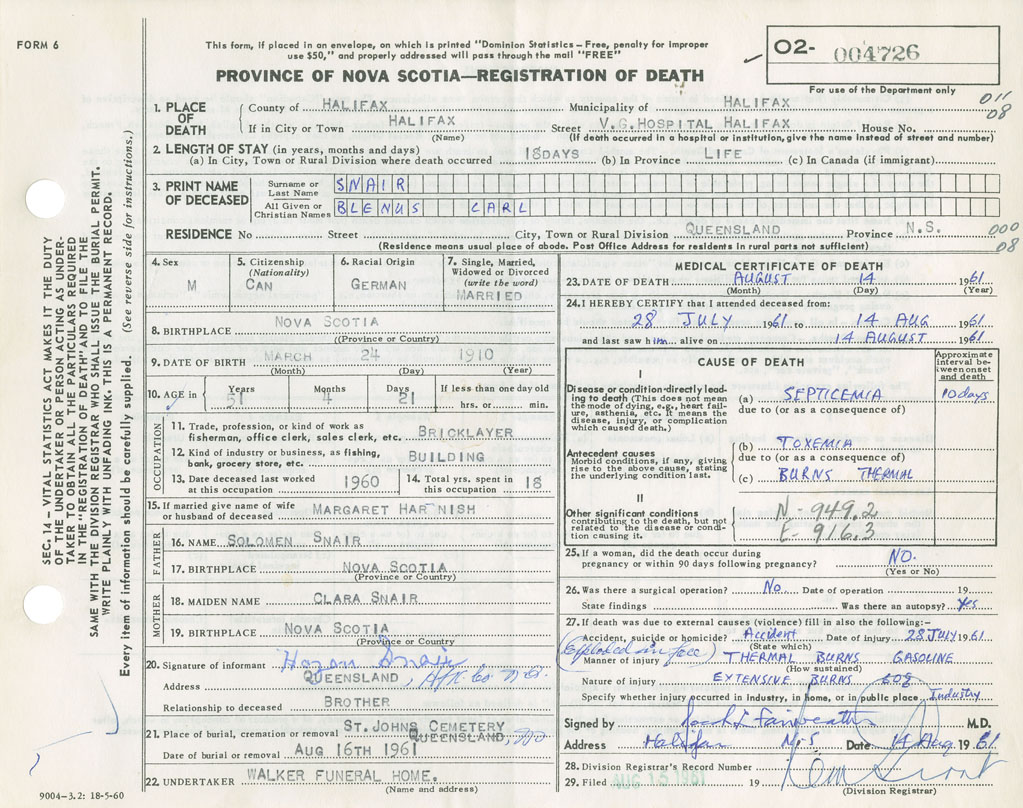 FORM 6
This form, if placed in an envelope, on which is printed "Dominion Statistics – Free, penalty for improper
use $50," and properly addressed will pass through the mail "FREE"
PROVINCE OF NOVA SCOTIA—REGISTRATION OF DEATH
02- 004726
For use of the Department only
011
08
1. PLACE OF DEATH
County of HALIFAX Municipality of HALIFAX
If in City or Town HALIFAX Street V.G. HOSPITAL HALIFAX House No.
(Name) (If death occurred in a hospital or institution, give the name instead of street and number)
2. LENGTH OF STAY (in years, months and days)
(a) In City, Town or Rural Division where death occurred 18 DAYS (b) In Province LIFE (c) In Canada (if immigrant)
3. PRINT NAME OF DECEASED
Surname or Last Name SNAIR
All Given or Christian Names BLENUS CARL
RESIDENCE No Street City, Town or Rural Division QUEENSLAND Province N.S.
000
08
(Residence means usual place of abode. Post Office Address for residents in rural parts not sufficient)
4. Sex M
5. Citizenship (Nationality) CAN
6. Racial Origin GERMAN
7. Single, Married, Widowed or Divorced (write the word) MARRIED
8. BIRTHPLACE NOVA SCOTIA
(Province or Country)
9. DATE OF BIRTH MARCH 24 1910
(Month) (Day) (Year)
10. AGE in Years 51 Months 4 Days 21 If less than one day old hrs. or min.
OCCUPATION
11. Trade, profession, or kind of work as
fisherman, office clerk, sales clerk, etc. BRICKLAYER
12. Kind of industry or business, as fishing,
bank, grocery store, etc. BUILDING
13. Date deceased last worked
at this occupation 1960
14. Total yrs. spent in
this occupation 18
15. If married give name of wife
or husband of deceased MARGARET HARNISH
FATHER
16. NAME SOLOMEN SNAIR
17. BIRTHPLACE NOVA SCOTIA
(Province or Country)
MOTHER
18. MAIDEN NAME CLARA SNAIR
19. BIRTHPLACE NOVA SCOTIA
(Province or Country)
20. Signature of informant Snair
Address QUEENSLAND, Hfx Co N.S.
Relationship to deceased BROTHER
21. Place of burial, cremation or removal ST. JOHNS CEMETERY
QUEENSLAND,
Date of burial or removal AUG 16TH 1961
22. UNDERTAKER WALKER FUNERAL HOME.
(Name and address)
9004–3.2: 18-5-60
MEDICAL CERTIFICATE OF DEATH
23. DATE OF DEATH AUGUST 14 1961
(Month) (Day) (Year)
24. I HEREBY CERTIFY that I attended deceased from:
28 JULY 1961 to 14 AUG 1961
and last saw him alive on 14 AUGUST 1961
CAUSE OF DEATH
Approximate interval between onset and death
I
Disease or condition directly leading to death (This does not mean the mode of dying, e.g., heart failure, asthenia, etc. It means the disease, injury, or complication which caused death.)
(a) SEPTICEMIA 10 days
due to (or as a consequence of)
Antecedent causes
Morbid conditions, if any, giving rise to the above cause, stating the underlying condition last.
(b) TOXEMIA
due to (or as a consequence of)
(c) BURNS THERMAL
II
Other significant conditions
contributing to the death, but not related to the disease or condition causing it.
N-949.2
E-916.3
25. If a woman, did the death occur during
pregnancy or within 90 days following pregnancy? NO.
(Yes or No)
26. Was there a surgical operation? No Date of operation 19
State findings Was there an autopsy? Yes
27. If death was due to external causes (violence) fill in also the following:–
Accident, suicide or homicide? Accident Date of injury 28 JULY 1961
(State which)
(Exploded in face)
Manner of injury THERMAL BURNS GASOLINE
(How sustained)
Nature of injury EXTENSIVE BURNS
Specify whether injury occurred in industry, in home, or in public place Industry
Signed by M.D.
Address Halifax N.S Date 14 Aug 1961
28. Division Registrar's Record Number
29. Filed AUG 15 1961 19
(Division Registrar)
SEC. 14 – VITAL STATISTICS ACT MAKES IT THE DUTY
OF THE UNDERTAKER OR PERSON ACTING AS UNDER-
TAKER TO OBTAIN ALL THE PARTICULARS REQUIRED
IN THE "REGISTRATION OF DEATH" AND TO FILE THE
SAME WITH THE DIVISION REGISTRAR WHO SHALL ISSUE THE BURIAL PERMIT.
WRITE PLAINLY WITH UNFADING INK. THIS IS A PERMANENT RECORD.
Every item of information should be carefully supplied. (See reverse side for instructions.)